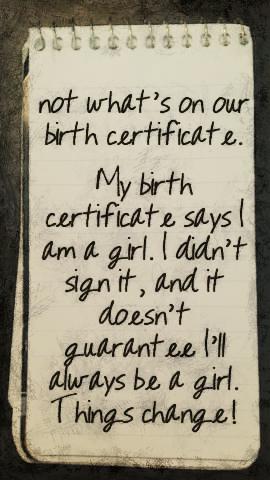 not what's on our
birth certificate.
My birth
certificate says I
am a girl. I didn't
sign it, and it
doesn't
guarantee I'll
always be a girl.
Things change!